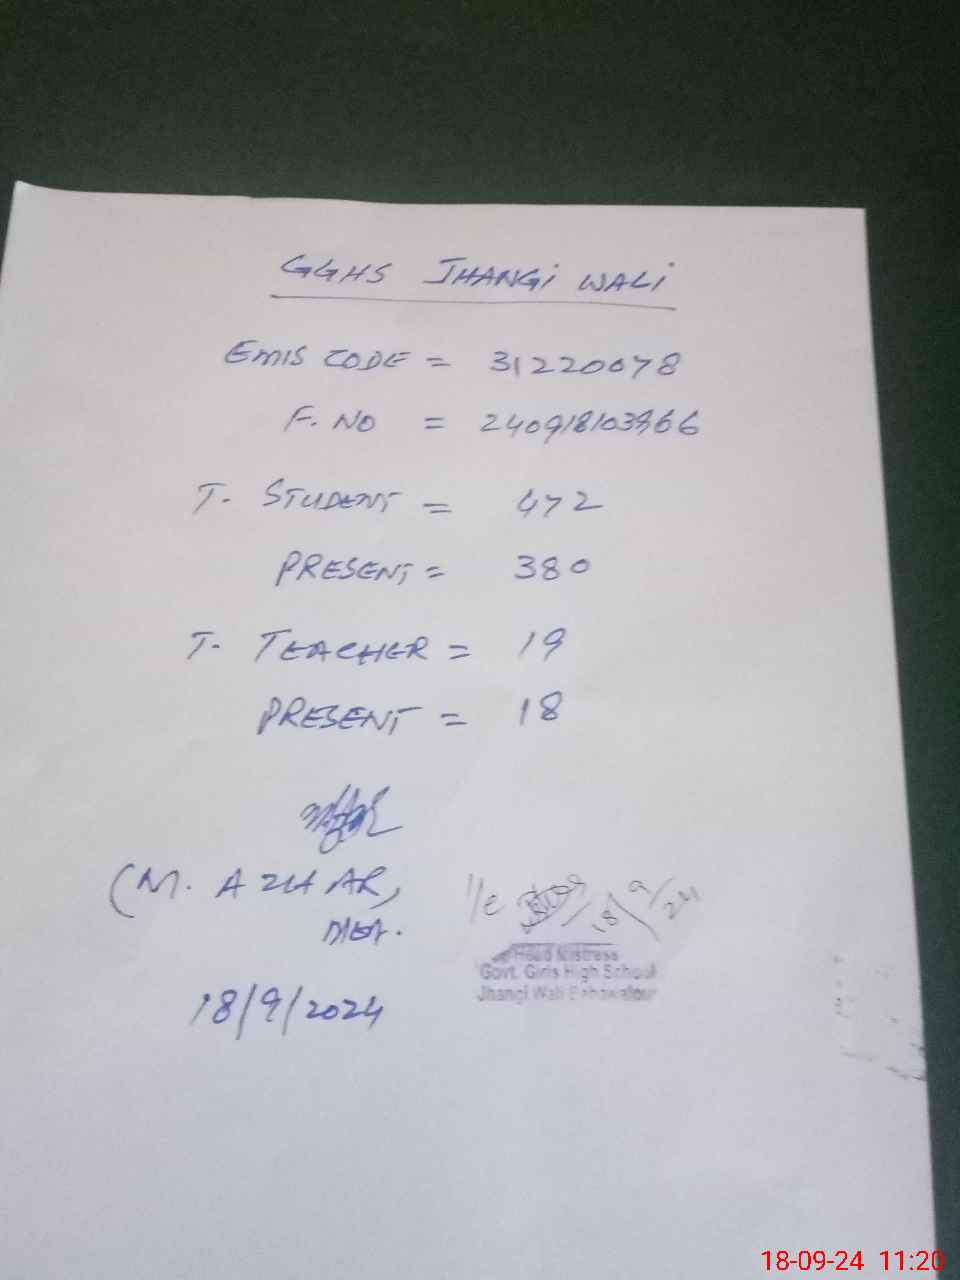 GGHS JHANGi WALi
EMIS CODE = 31220078
F. NO = 240918103966
T. STUDENT = 472
PRESENT = 380
T. TEACHER = 19
PRESENT = 18
(M. AZHAR,
MEA.
18/9/2024
I/C
18/9/24
Head Mistress
Govt. Girls High School
Jhangi Wali Bahawalpur
18-09-24 11:20